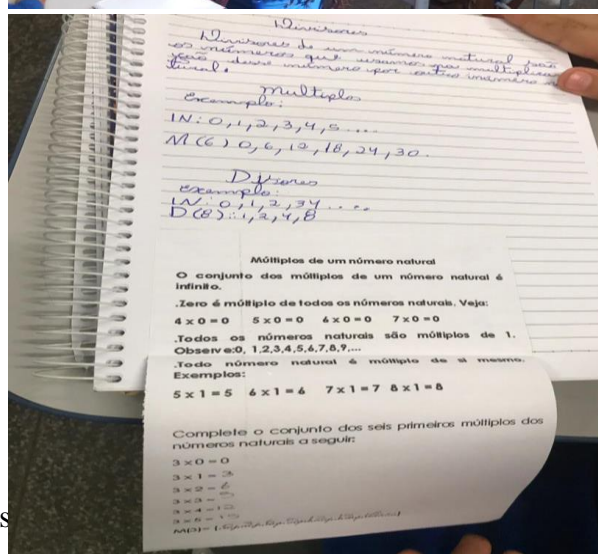 Divisores
Divisores de um número natural são
os números que usamos na multiplica
ção desse número por outro número na
tural.
Multiplos
Exemplo:
IN: 0,1,2,3,4,5....
M(6) 0,6,12,18,24,30.
Exemplo:
IN: 0,1,2,34....
D(8): 1,2,4,8
Múltiplos de um número natural
O conjunto dos múltiplos de um número natural é
infinito.
.Zero é múltiplo de todos os números naturais. Veja:
4 x 0 = 0 5 x 0 = 0 6 x 0 = 0 7 x 0 = 0
.Todos os números naturais são múltiplos de 1.
Observe:0, 1,2,3,4,5,6,7,8,9,...
.Todo número natural é múltiplo de si mesmo.
Exemplos:
5 x 1 = 5 6 x 1 = 6 7 x 1 = 7 8 x 1 = 8
Complete o conjunto dos seis primeiros múltiplos dos
números naturais a seguir:
3 x 0 = 0
3 x 1 = 3
3 x 2 = 6
3 x 3 = 9
3 x 4 = 12
3 x 5 = 15
M(3)= {
s